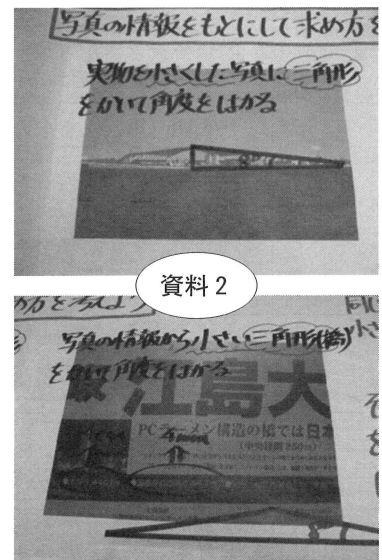 写真の情報をもとにして求め方を
実物を小さくした写真に三角形
をかいて角度をはかる
資料2
写真の情報から小さい三角形(橋)
をかいて角度をはかる
江島大
PCラーメン構造の橋では日本
(中央径間250m)